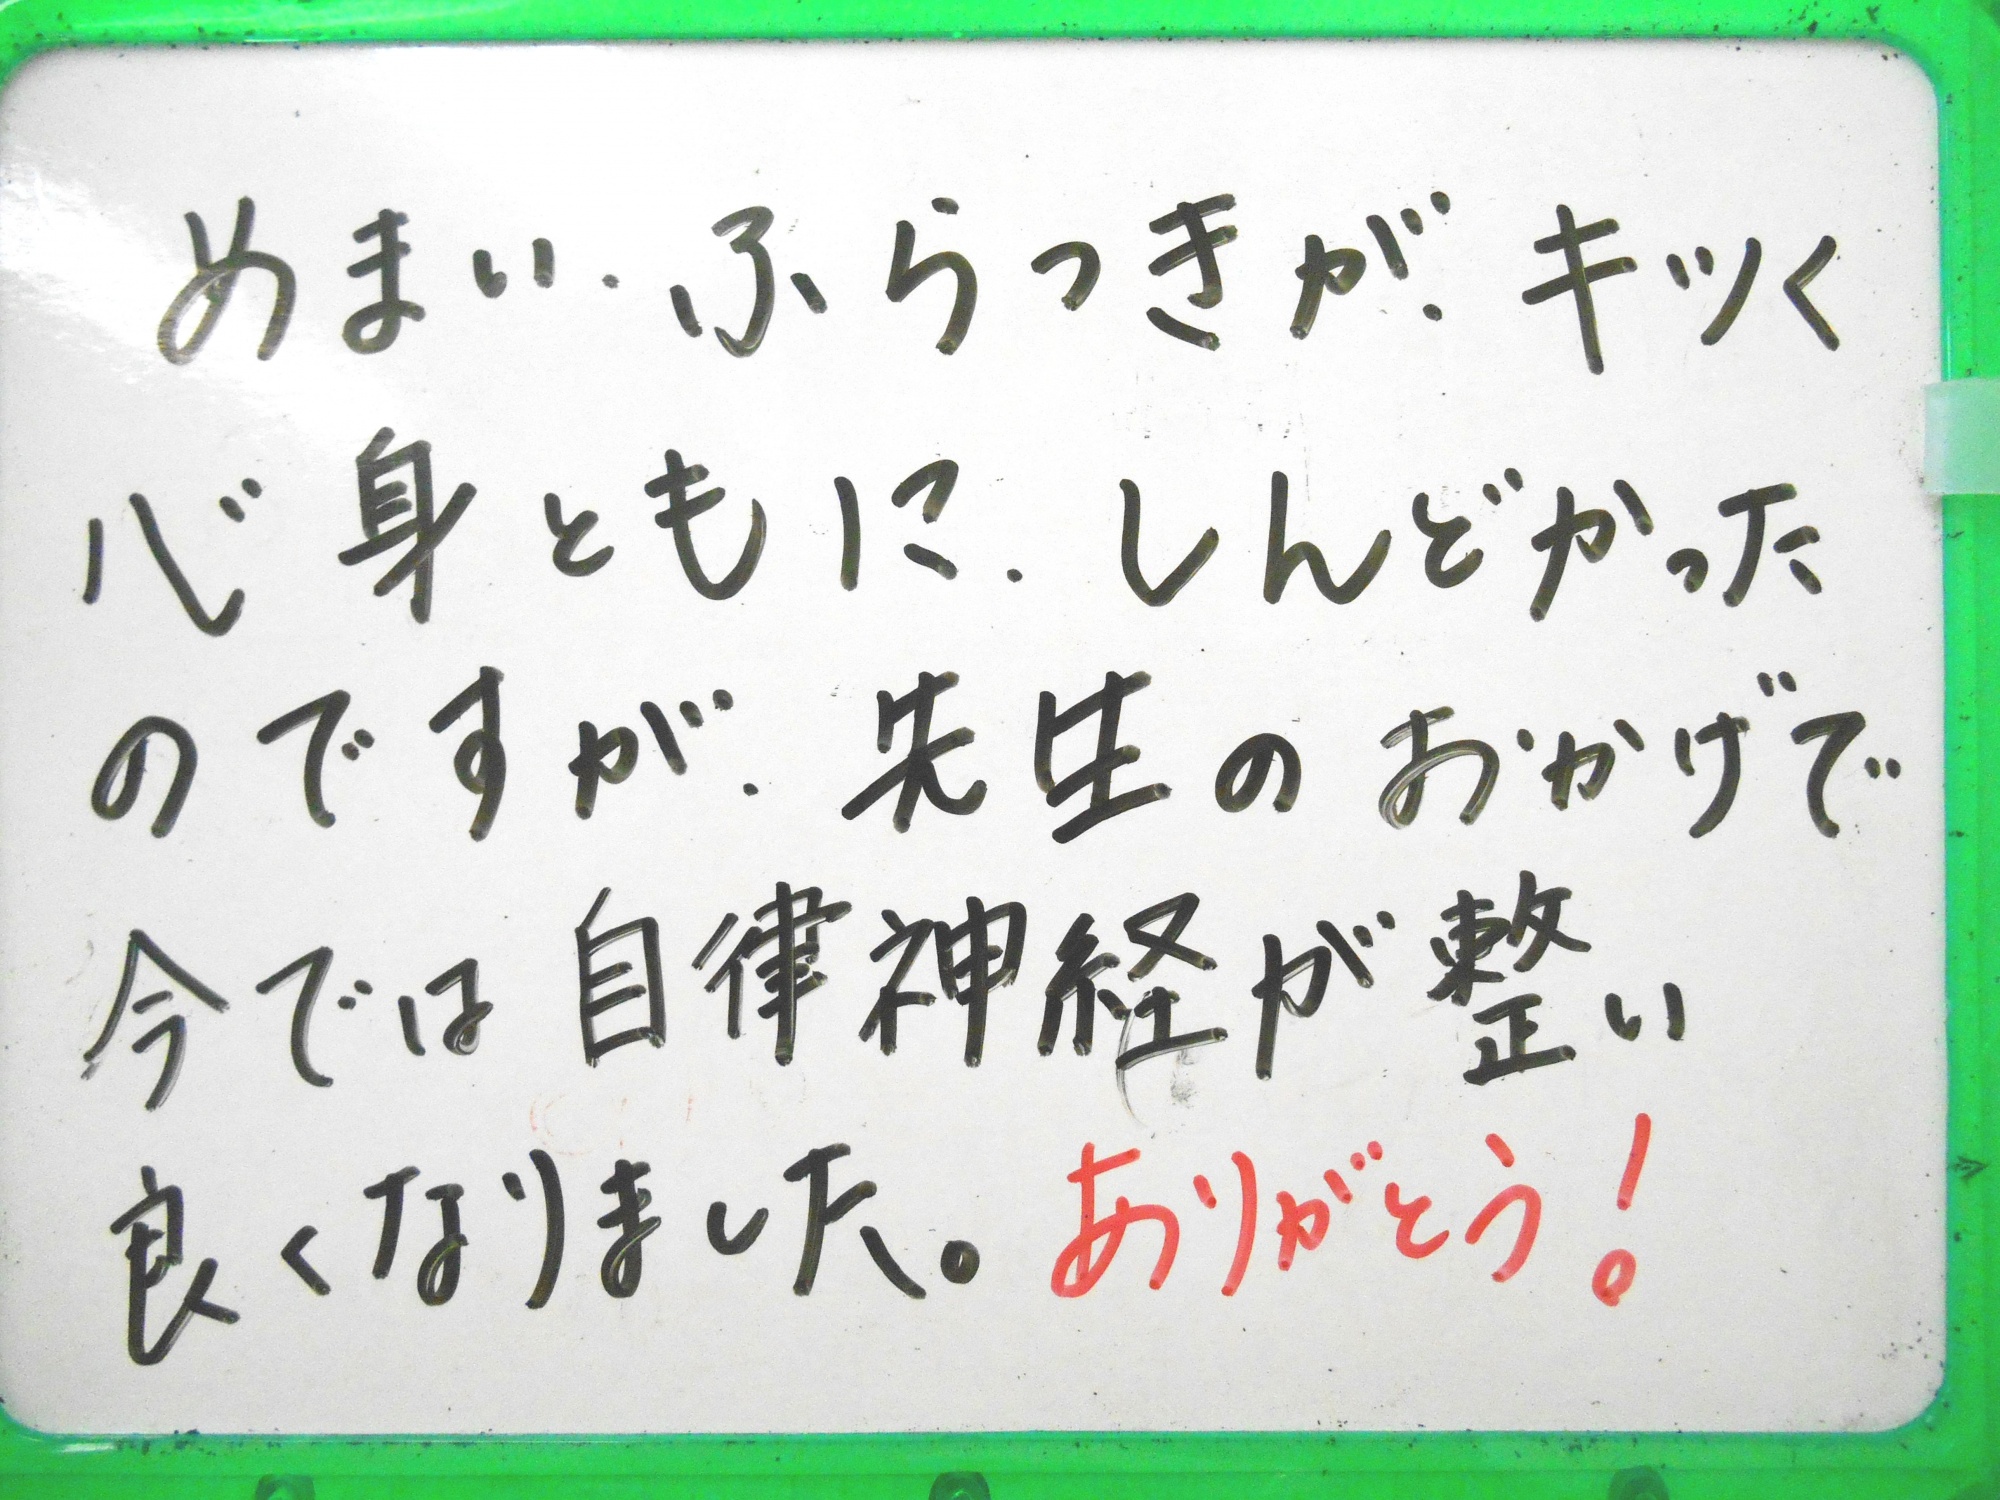 めまい．ふらつきが．キツく
心身ともに．しんどかった
のですが．先生のおかげで
今では自律神経が整い
良くなりました。ありがとう！